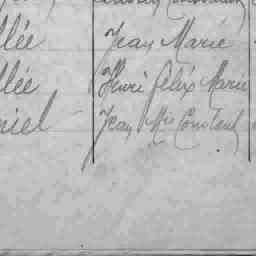 llée Jean Marie
llée Henri Félix Marie
niel Jean Mie Constant